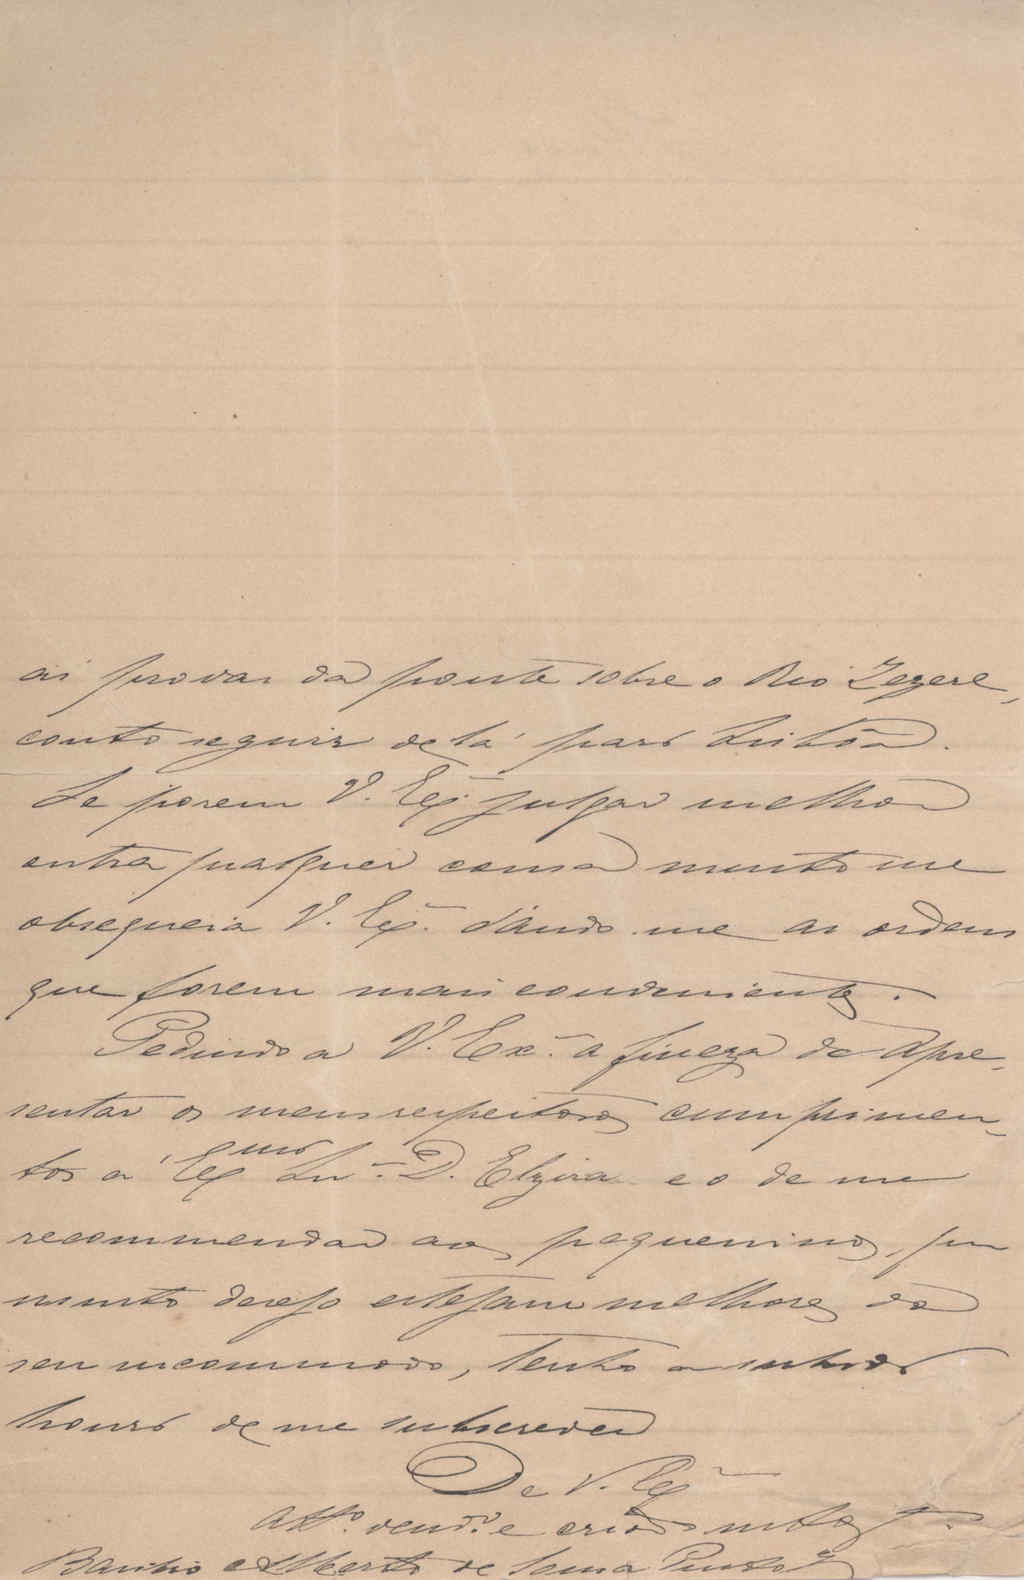 as provas da ponte sobre o Rio Zezere,
conto seguir de lá para Lisbôa.
Se porem V. Exª. julgar melhor
outra qualquer cousa muito me
obsequeia V. Exª. dando-me as ordens
que forem mais convenientes.
Pedindo a V. Exª. a fineza de apre-
sentar os meus respeitosos cumprimen-
tos á Exma Snrª. D. Elzira e o de me
recommendar aos pequeninos, que
muito desejo estejam melhores do
seu incommodo, tenho a subida
honra de me subscrever
De V. Exª
Attº. venºr e criado mto
Basilio Alberto de Sousa Pinto